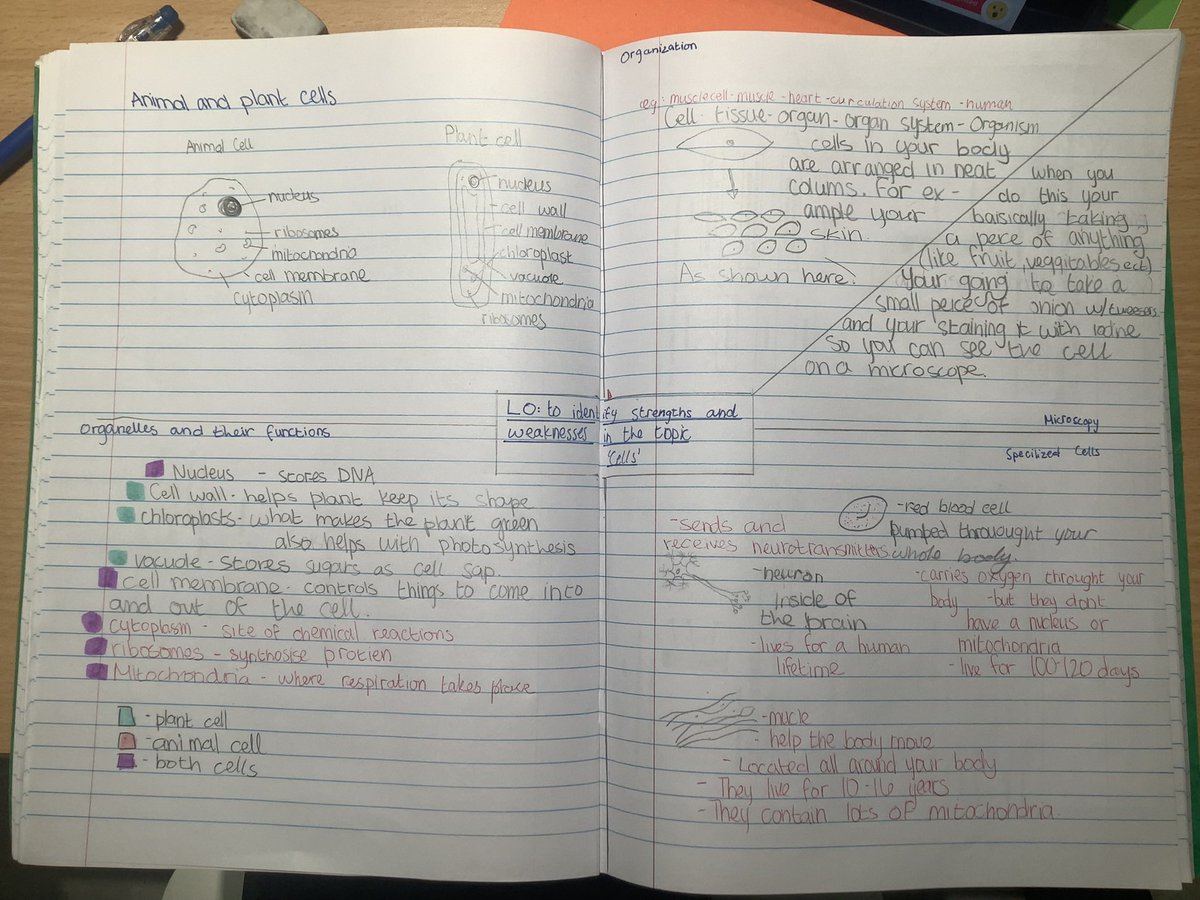 Animal and plant cells
Animal Cell
nucleus
ribosomes
mitochondria
cell membrane
Cytoplasm
Plant cell
nucleus
cell wall
cell membrane
chloroplast
vacuole
mitochondria
ribosomes
Organization
eg: muscle cell - muscle - heart - curculation system - human
Cell - tissue - organ - organ system - Organism
cells in your body
are arranged in neat
colums. For ex -
ample your
skin.
As shown here:
when you
do this your
baisically taking
a pece of anything
(like fruit, veggitables ect)
Your going to take a
small peice of onion w/tweesers
and your staining it with iodne
so you can see the cell
on a microscope.
LO: to identify strengths and
weaknesses in the topic
'Cells'
Microscopy
Specilized Cells
Organelles and their functions
Nucleus - stores DNA
Cell wall - helps plant keep its shape
chloroplasts - what makes the plant green
also helps with photosynthesis
vacuole - stores sugars as cell sap.
Cell membrane - controls things to come into
and out of the cell.
cytoplasm - site of chemical reactions
ribosomes - synthosise protien
Mitochondria - where respiration takes place
- plant cell
- animal cell
- both cells
- sends and
receives neurotransmitters
- neuron
inside of
the brain
- lives for a human
lifetime
- red blood cell
pumped throuought your
whole body
- carries oxygen throught your
body - but they dont
have a nucleus or
mitochondria
- live for 100-120 days
- mucle
- help the body move
- Located all around your body
- They live for 10-16 years
- They contain lots of mitochondria.